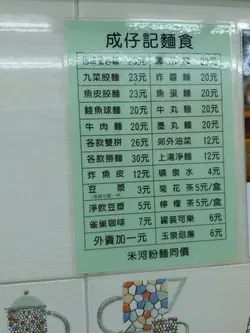 成仔記麵食
23元 20元
九菜餃麵 23元 炸醬麵 20元
魚皮餃麵 23元 魚蛋麵 20元
鯪魚球麵 20元 牛丸麵 20元
牛肉麵 20元 墨丸麵 20元
各款雙拼 26元 郊外油菜 12元
各款撈麵 30元 上湯淨麵 12元
炸魚皮 12元 礦泉水 4元
豆漿 3元 菊花茶 5元/盒
淨飲豆漿 5元 檸檬茶 5元/盒
雀巢咖啡 7元 罐裝可樂 6元
外賣加一元 玉泉忌廉 6元
米河粉麵同價